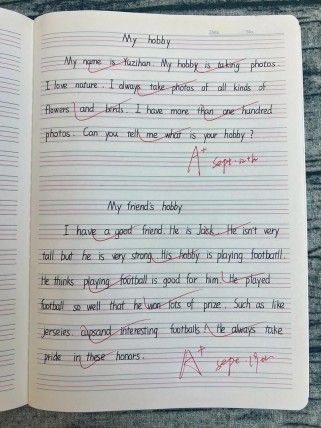 My hobby
My name is Yuzihan. My hobby is taking photos.
I love nature. I always take photos of all kinds of
flowers and birds. I have more than one hundred
photos. Can you tell me what is your hobby?
A+ Sept. 12th
My friend's hobby
I have a good friend. He is Jack. He isn't very
tall but he is very strong. His hobby is playing football.
He thinks playing football is good for him. He played
football so well that he won lots of prize. Such as like
jerseies. and interesting footballs. He always take
pride in these honors.
A+ sept.